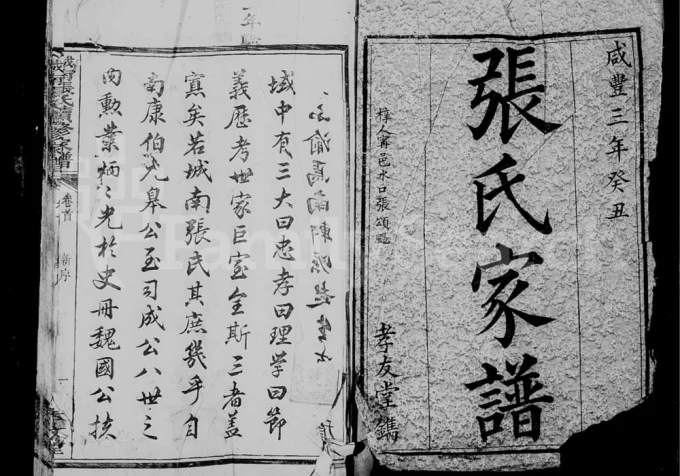 咸豐三年癸丑
張氏家譜
梓人甯邑水口張頌
孝友堂鐫
域中有三大曰忠孝曰理學曰節
義歷考世家巨室全斯三者蓋
寡矣若城南張氏其庶幾乎自
南康伯九皋公至司成公八世之
內勲業炳〻光於史冊魏國公扶
張氏續修家譜
卷首
新序
一
FamilySearch